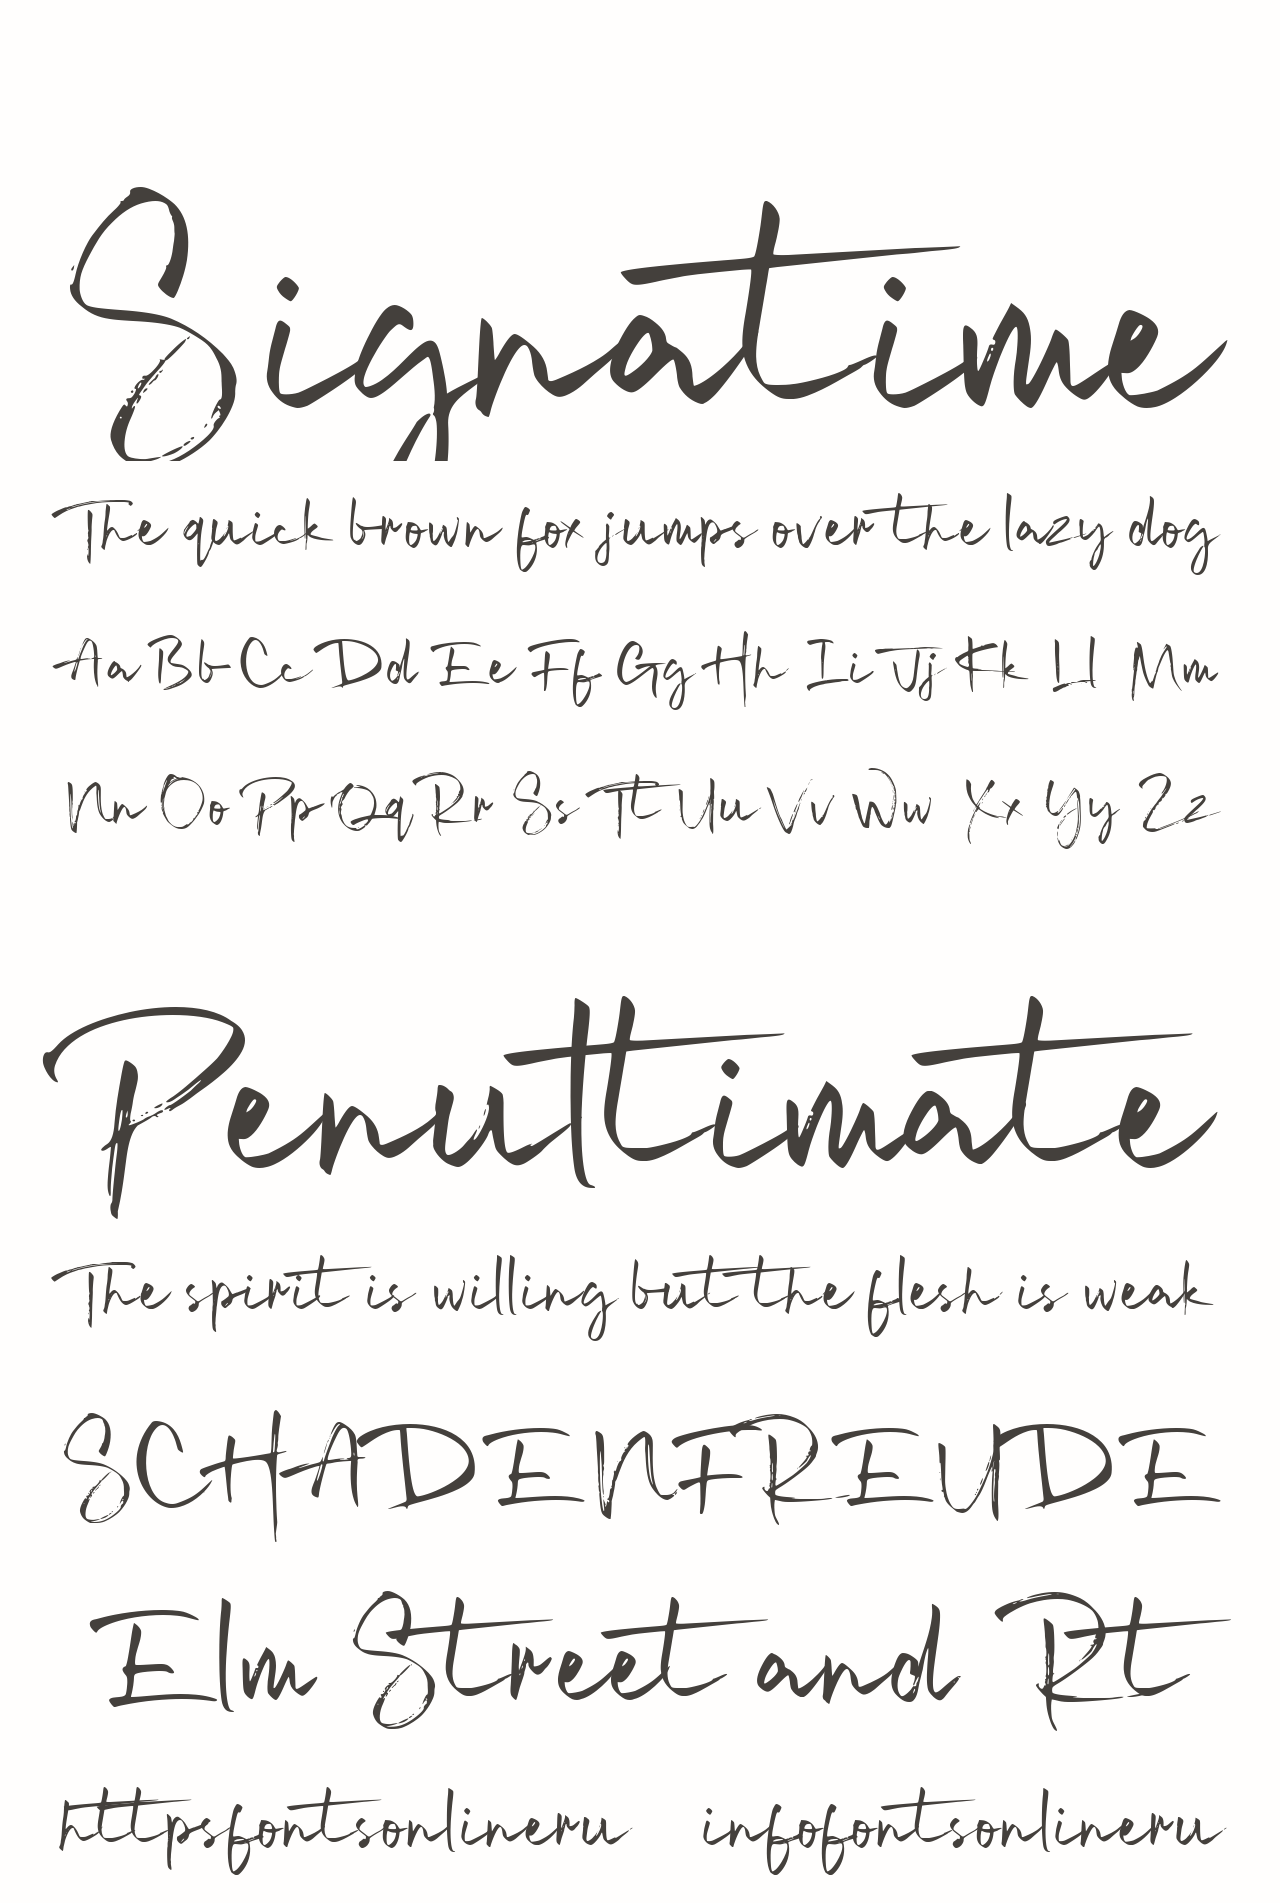 Signatime
The quick brown fox jumps over the lazy dog
Aa Bb Cc Dd Ee Ff Gg Hh Ii Jj Kk Ll Mm
Nn Oo Pp Qq Rr Ss Tt Uu Vv Ww Xx Yy Zz
Penultimate
The spirit is willing but the flesh is weak
SCHADENFREUDE
Elm Street and Rt
httpsfontsonlineru infofontsonlineru